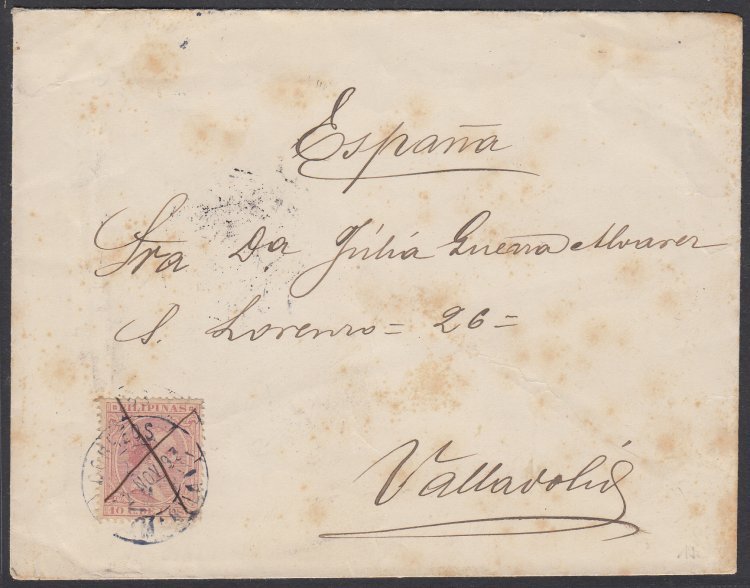 España
Sra Da Júlia Guerra Alvarez
S. Lorenzo = 26 =
Valladolid
FILIPINAS
CORREOS
NOV 93
10